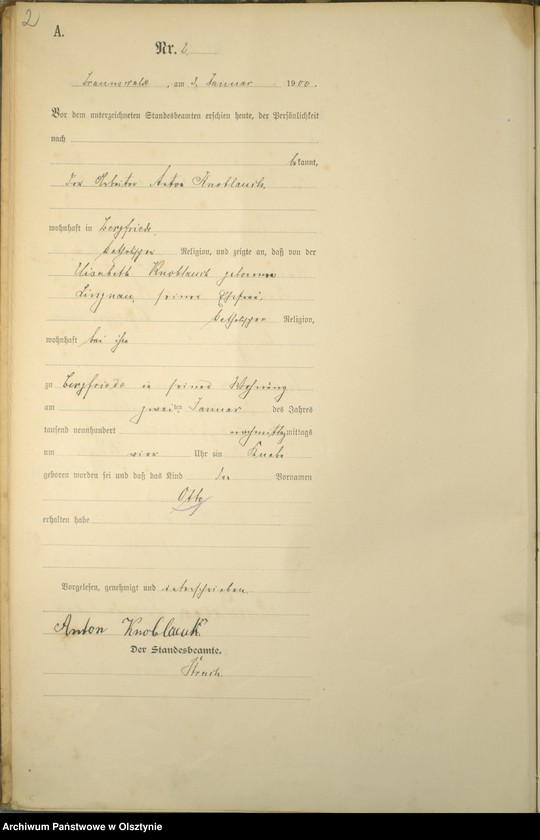 2
A.
Nr. 2.
Braunswalde, am 3. Januar 1900.
Vor dem unterzeichneten Standesbeamten erschien heute, der Persönlichkeit
nach
bekannt,
der Arbeiter Anton Knoblauch,
wohnhaft in Bergfriede
katholischer Religion, und zeigte an, daß von der
Elisabeth Knoblauch geborene
seiner Ehefrau,
katholischer Religion,
wohnhaft bei ihm
zu Bergfriede in seiner Wohnung
am zweiten Januar des Jahres
tausend neunhundert nachmittags
um vier Uhr ein Knabe
geboren worden sei und daß das Kind den Vornamen
Otto
erhalten habe
Vorgelesen, genehmigt und unterschrieben.
Anton Knoblauch
Der Standesbeamte.
Archiwum Państwowe w Olsztynie